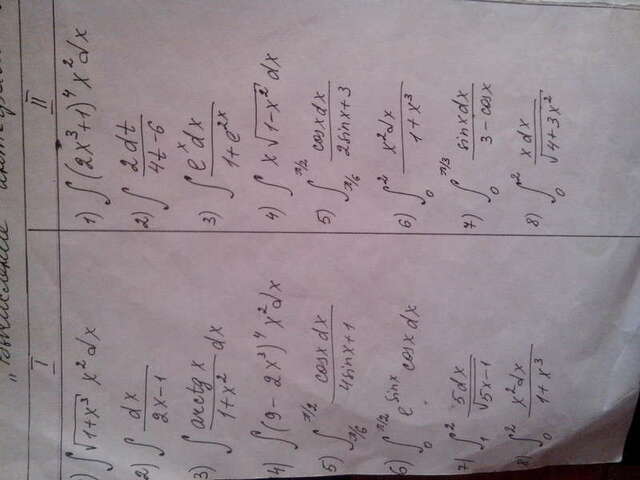 " интеграл
I
1) ∫ √(1+x³) x² dx
2) ∫ dx/(2x-1)
3) ∫ arctg x/(1+x²) dx
4) ∫ (9-2x³)⁴ x² dx
5) ∫_{π/6}^{π/2} cosx dx/(4sinx+1)
6) ∫_0^{π/2} e^{sinx} cosx dx
7) ∫_1^2 5dx/√(5x-1)
8) ∫_0^2 x²dx/(1+x³)
II
1) ∫ (2x³+1)⁴ x² dx
2) ∫ 2dt/(4t-6)
3) ∫ eˣdx/(1+e^{2x})
4) ∫ x√(1-x²) dx
5) ∫_{π/6}^{π/2} cosxdx/(2sinx+3)
6) ∫_0^2 x²dx/(1+x³)
7) ∫_0^{π/3} sinxdx/(3-cosx)
8) ∫_0^2 xdx/√(4+3x²)